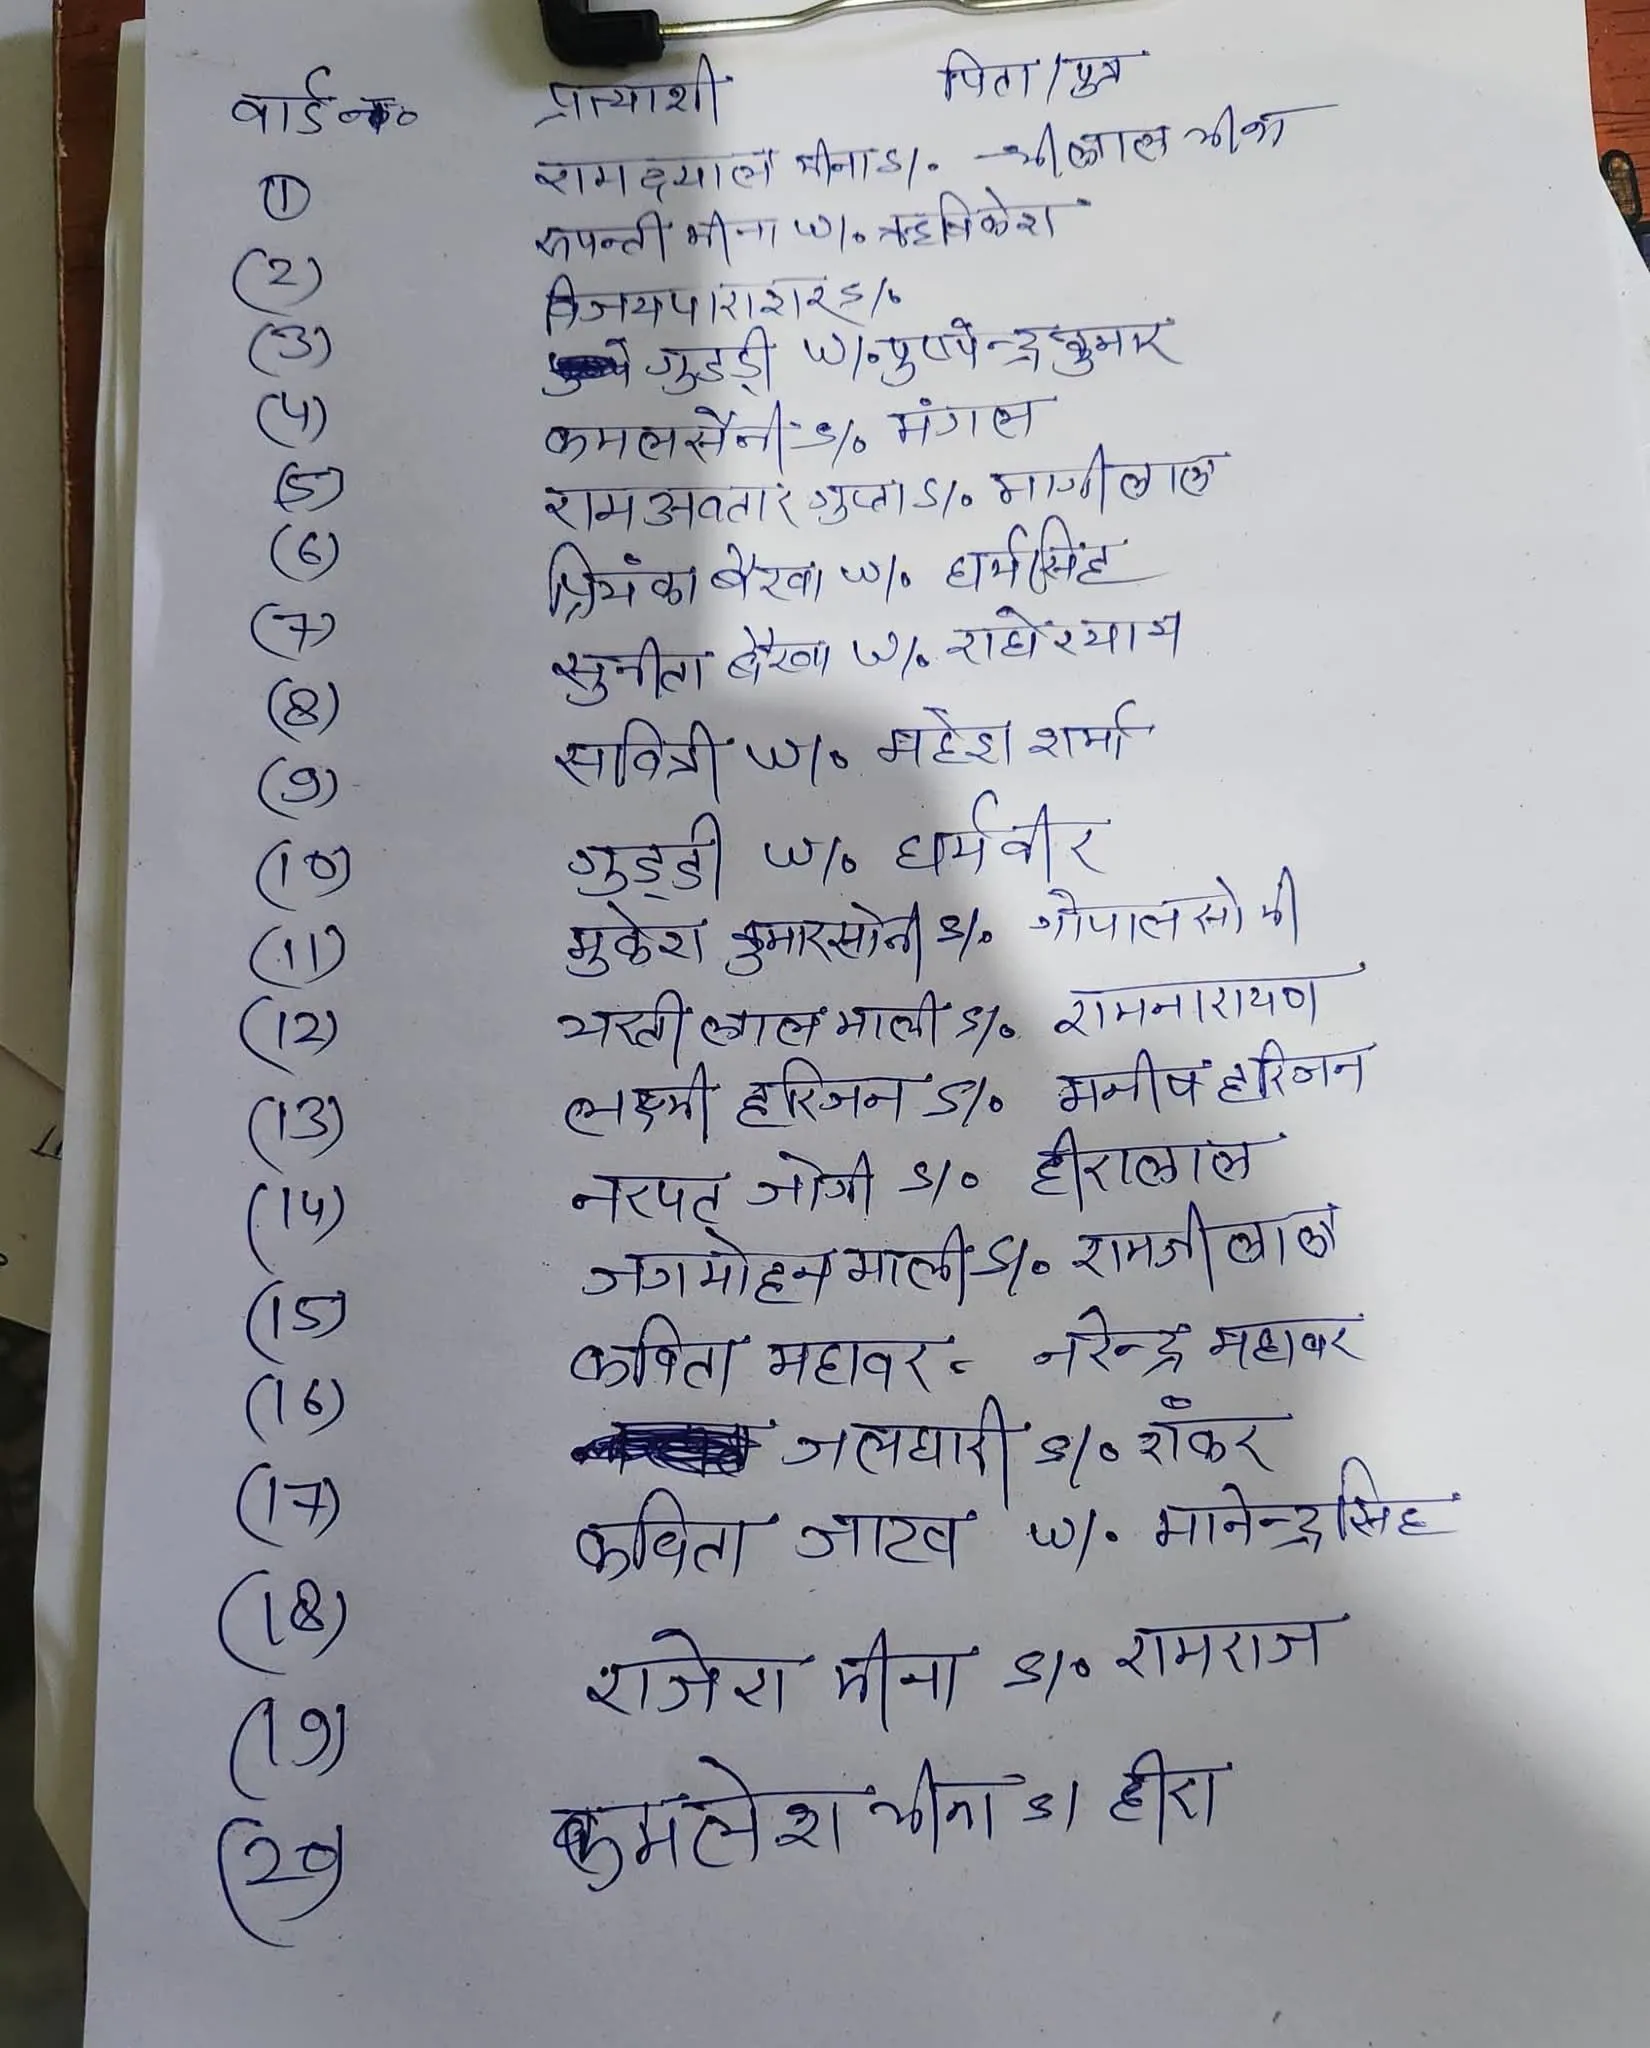 वार्ड न० प्रत्याशी पिता/पुत्र
① रामदयाल मीना S/. श्रीलाल मीना
(2) रुपन्ती मीना W/. ऋषिकेश
(3) विजयपाराशर S/.
(4) गुडडी W/. पुष्पेन्द्रकुमार
(5) कमलसैनी S/. मंगल
(6) रामअवतार गुप्ता S/. मांगीलाल
(7) प्रियंका बैरवा W/. धर्मसिंह
(8) सुनीता बैरवा W/. राधेश्याम
(9) सावित्री W/. महेश शर्मा
(10) गुड्डी W/. धर्मवीर
(11) मुकेश कुमारसोनी S/. गोपालसोनी
(12) लाल माली S/. रामनारायण
(13) लक्ष्मी हरिजन S/. मनीष हरिजन
(14) नरपत् जोगी S/. हीरालाल
(15) जगमोहन माली S/. रामजीलाल
(16) कविता महावर = नरेन्द्र महावर
(17) जलधारी S/. शंकर
(18) कविता जाटव W/. मानेन्द्रसिंह
(19) राजेश मीना S/. रामराज
(20) कमलेश मीना S/ हीरा